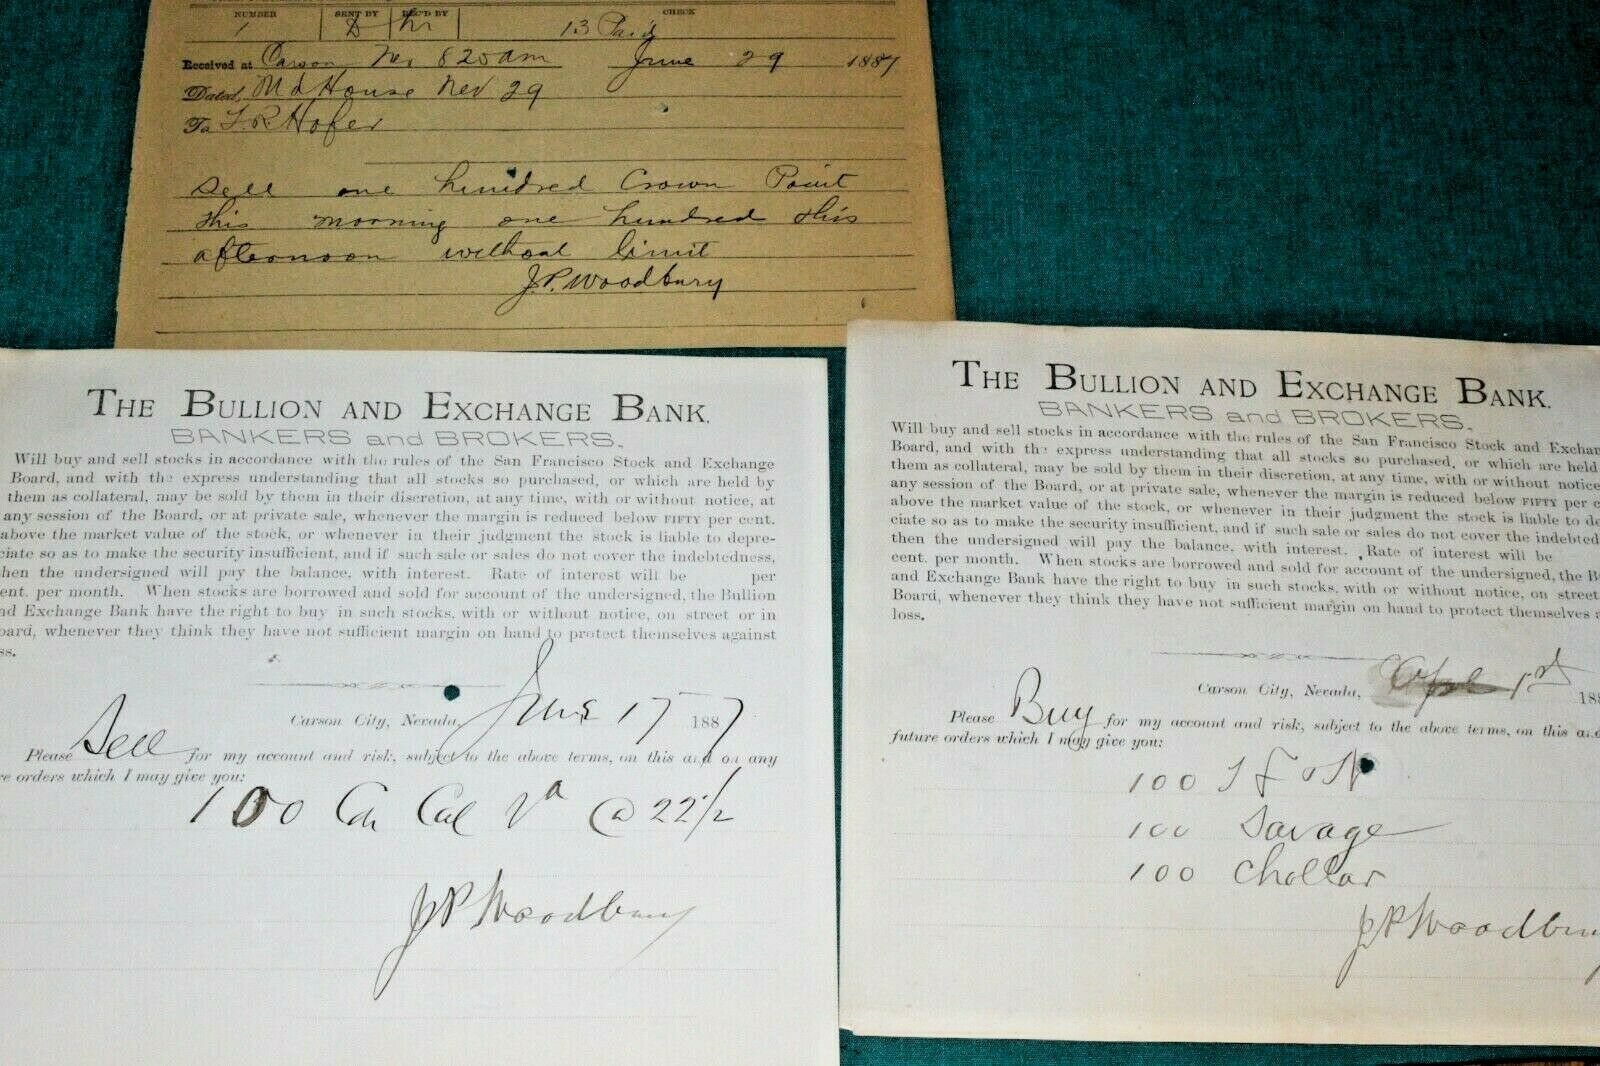 NUMBER SENT BY REC'D BY CHECK
1 D Hr 13 Paid
Received at Carson Nev 8 20 am June 29 1887
Dated, Md House Nev 29
To T. R. Hofer
Sell one hundred Crown Point
this morning one hundred this
afternoon without limit
J. P. Woodbury
THE BULLION AND EXCHANGE BANK.
BANKERS and BROKERS.
Will buy and sell stocks in accordance with the rules of the San Francisco Stock and Exchange
Board, and with the express understanding that all stocks so purchased, or which are held by
them as collateral, may be sold by them in their discretion, at any time, with or without notice, at
any session of the Board, or at private sale, whenever the margin is reduced below FIFTY per cent.
above the market value of the stock, or whenever in their judgment the stock is liable to depre-
ciate so as to make the security insufficient, and if such sale or sales do not cover the indebtedness,
hen the undersigned will pay the balance, with interest. Rate of interest will be per
ent. per month. When stocks are borrowed and sold for account of the undersigned, the Bullion
nd Exchange Bank have the right to buy in such stocks, with or without notice, on street or in
oard, whenever they think they have not sufficient margin on hand to protect themselves against
ss.
Carson City, Nevada, June 17 1887
Please Sell for my account and risk, subject to the above terms, on this and on any
re orders which I may give you:
100 Con Cal Va @ 22 1/2
J P Woodbury
THE BULLION AND EXCHANGE BANK.
BANKERS and BROKERS.
Will buy and sell stocks in accordance with the rules of the San Francisco Stock and Exchan
Board, and with the express understanding that all stocks so purchased, or which are held
them as collateral, may be sold by them in their discretion, at any time, with or without notice
any session of the Board, or at private sale, whenever the margin is reduced below FIFTY per c
above the market value of the stock, or whenever in their judgment the stock is liable to de
ciate so as to make the security insufficient, and if such sale or sales do not cover the indebted
then the undersigned will pay the balance, with interest. Rate of interest will be
cent. per month. When stocks are borrowed and sold for account of the undersigned, the B
and Exchange Bank have the right to buy in such stocks, with or without notice, on street
Board, whenever they think they have not sufficient margin on hand to protect themselves a
loss.
Carson City, Nevada, 1st 188
Please Buy for my account and risk, subject to the above terms, on this and
future orders which I may give you:
100
100 Savage
100 Chollar
J P Woodbury